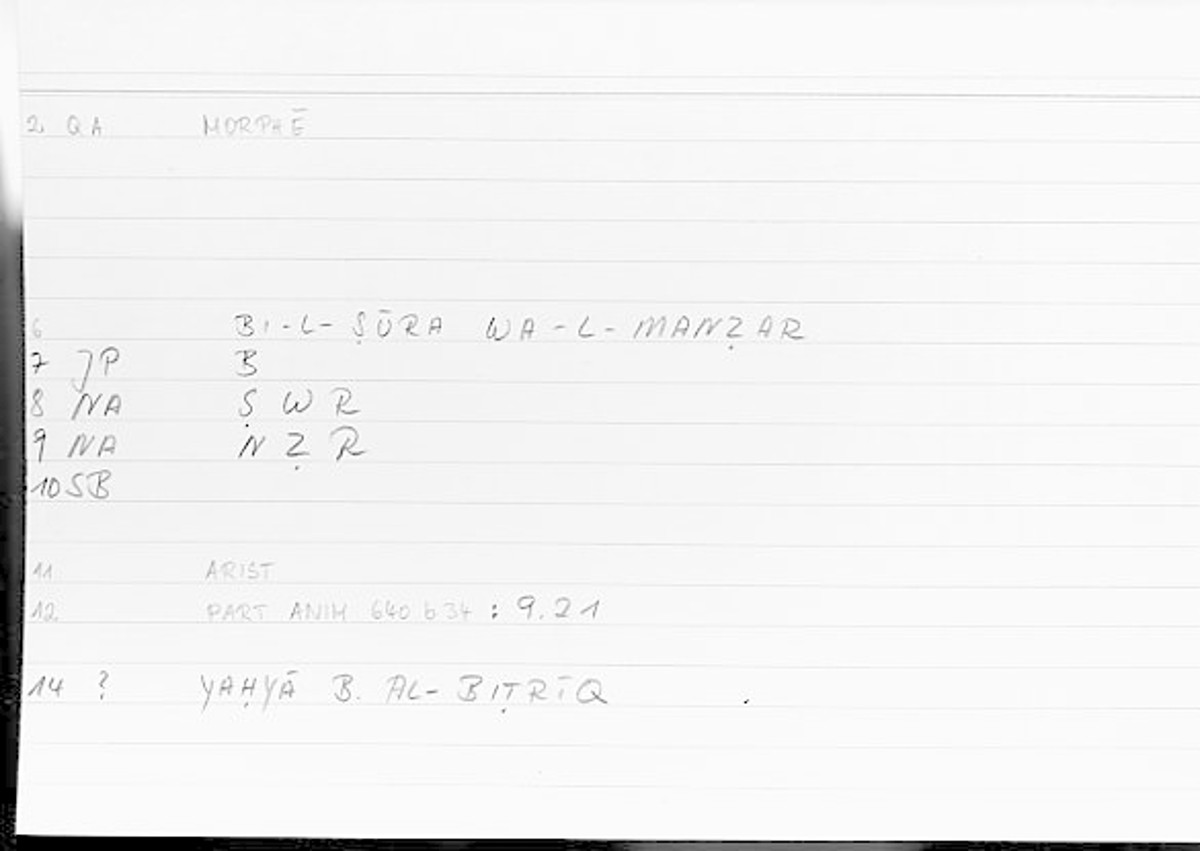 2 QA MORPHĒ
6 BI-L-ṢŪRA WA-L-MANẒAR
7 JP B
8 NA Ṣ W R
9 NA N Ẓ R
10 SB
11 ARIST
12 PART ANIM 640 b 34 : 9.21
14 ? YAḤYĀ B. AL-BIṬRĪQ